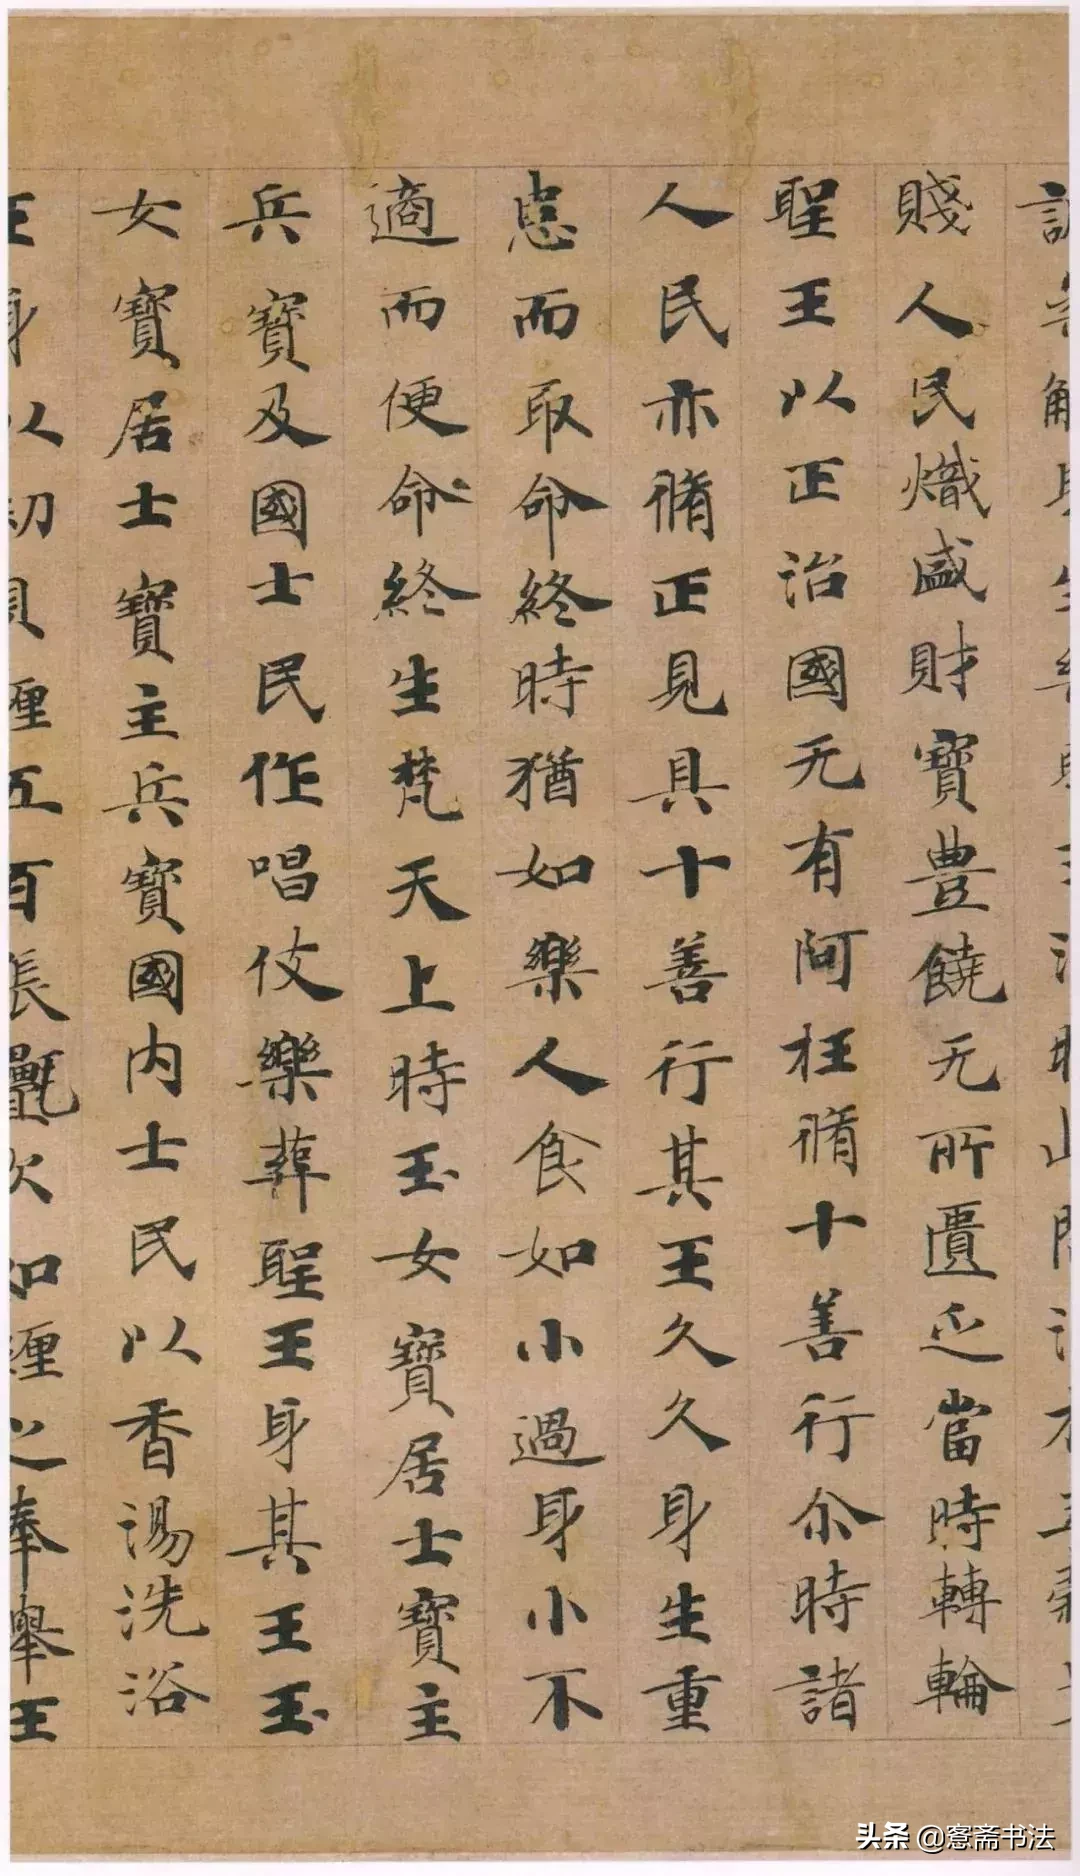 賤人民熾盛財寶豊饒无所匱乏當時轉輪
聖王以正治國无有阿枉脩十善行尒時諸
人民亦脩正見具十善行其王久久身生重
患而取命終時猶如樂人食如小過身小不
適而便命終生梵天上時玉女寶居士寶主
兵寶及國士民作唱伎樂葬聖王身其王玉
女寶居士寶主兵寶國内士民以香湯洗浴
王身以劫貝纏五百張㲲次如纏之奉舉王
头条 @愙斋书法